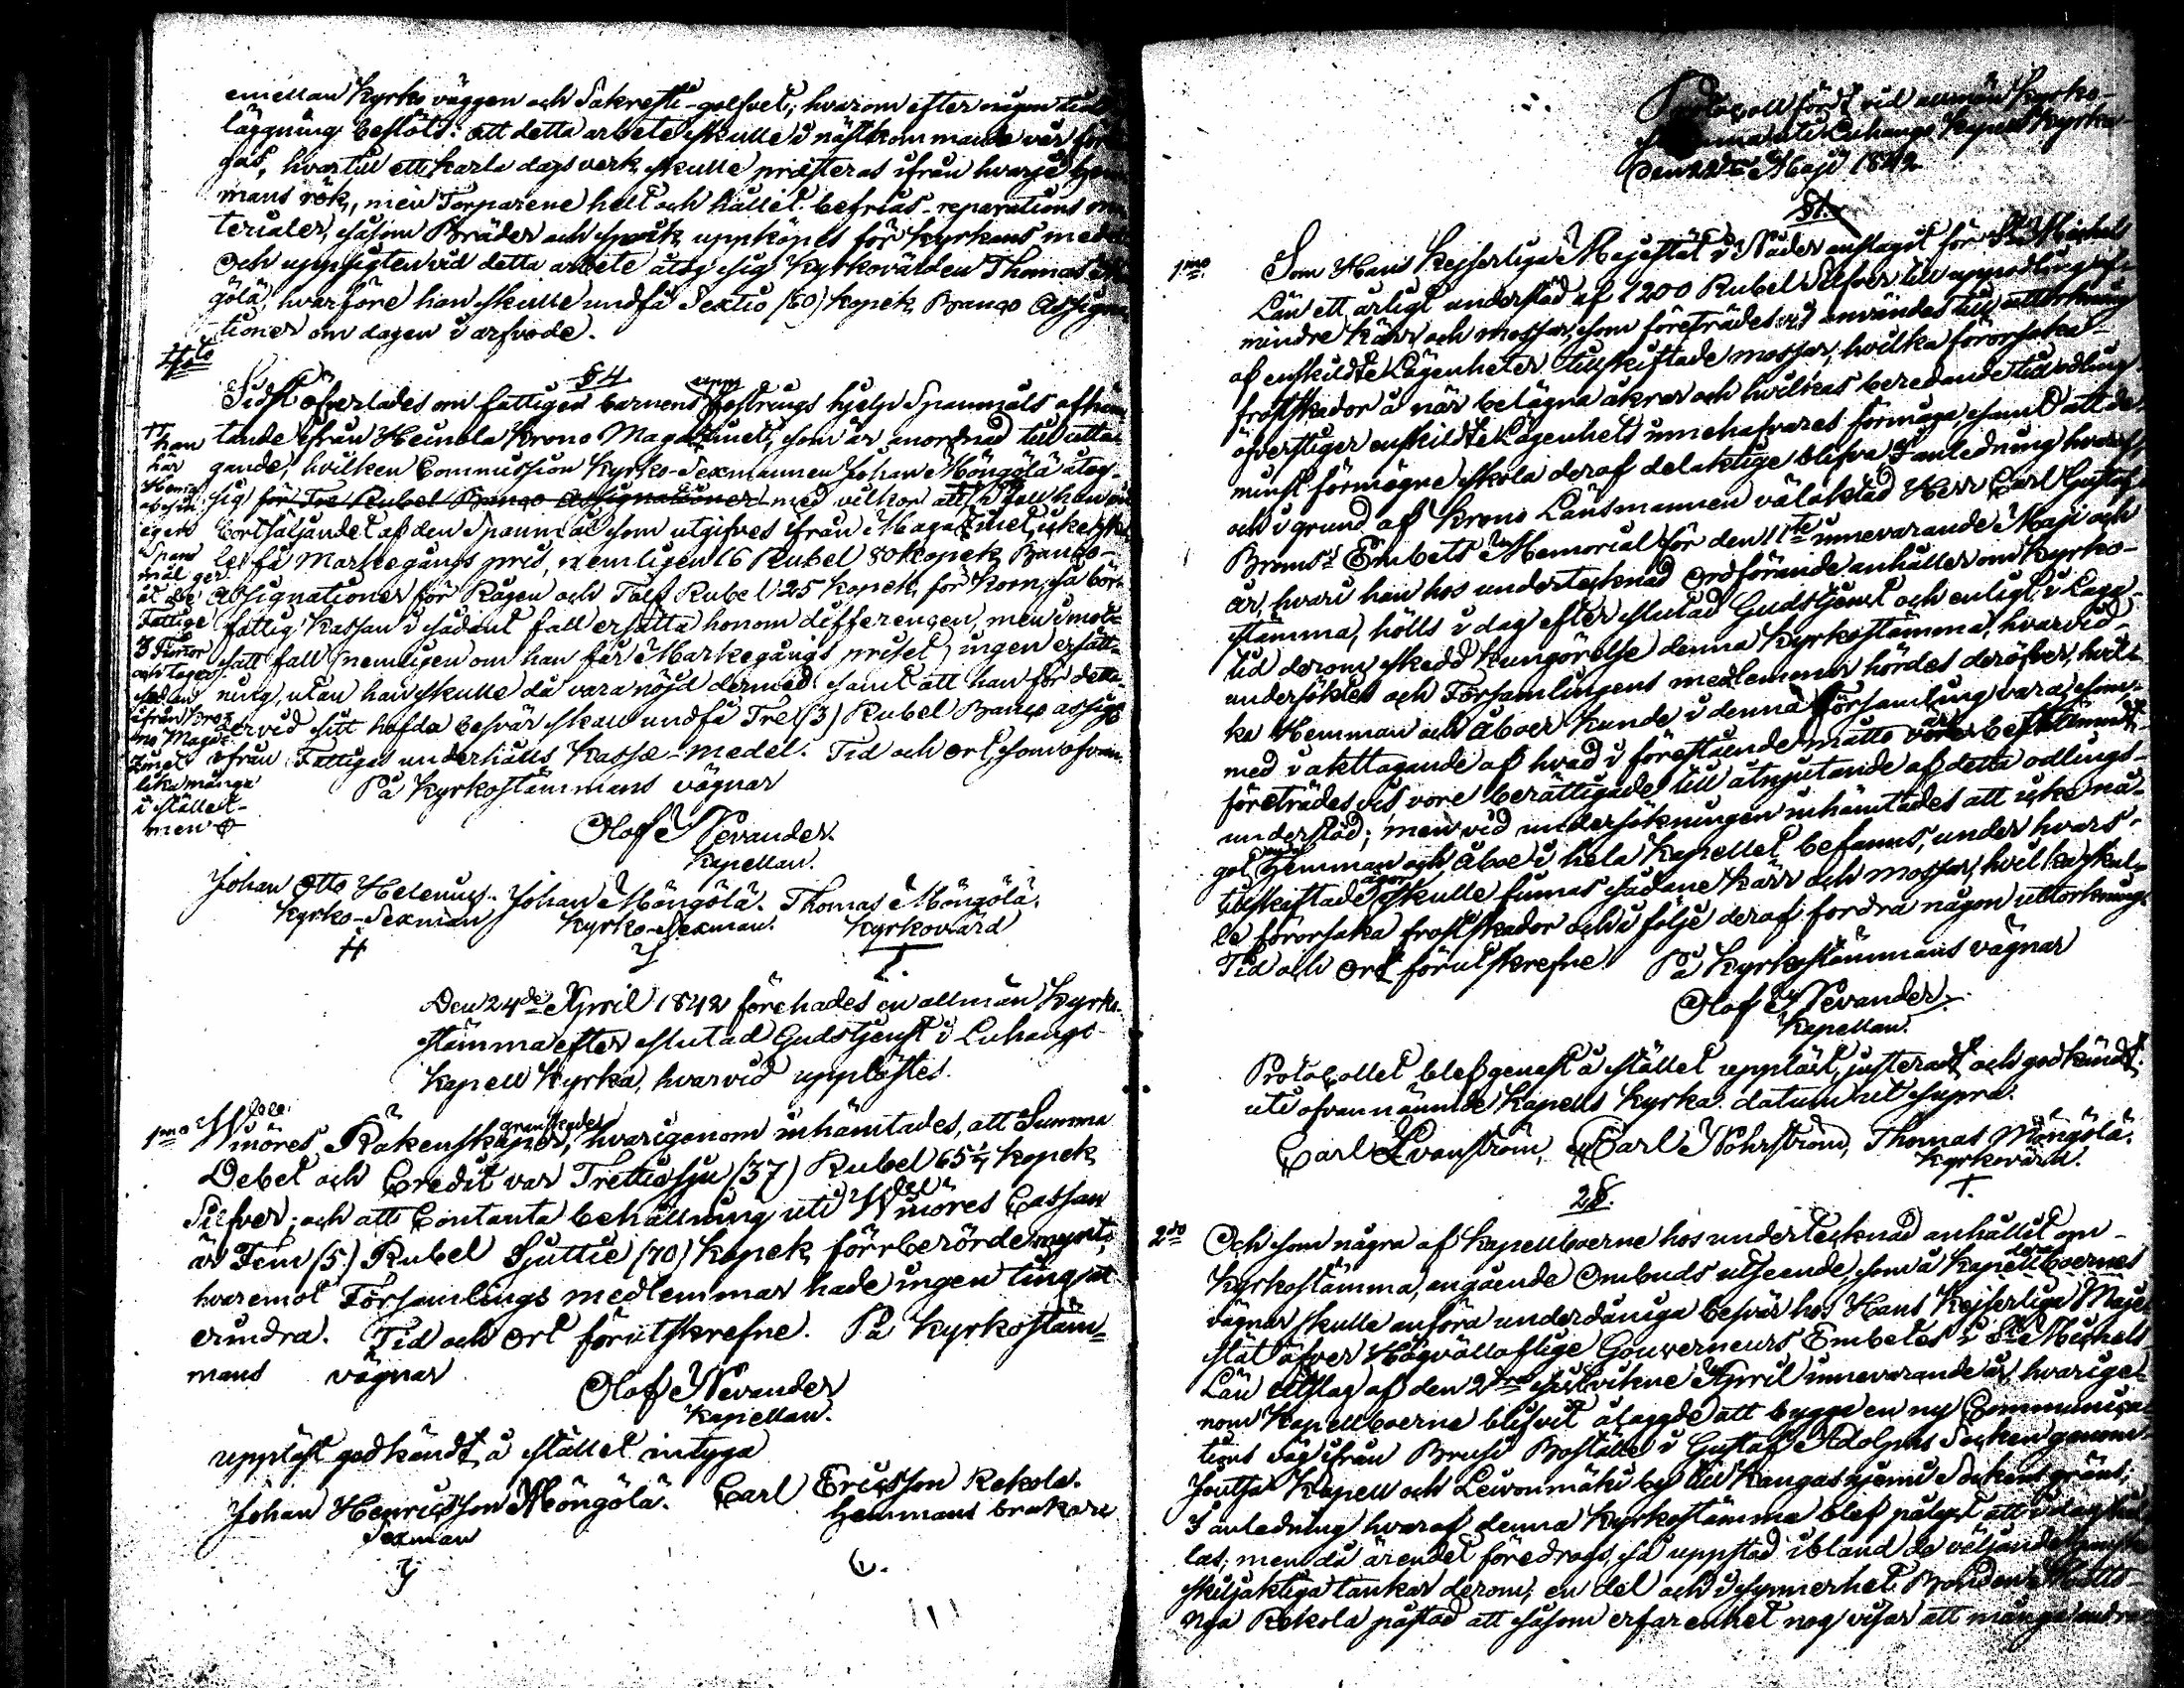 emellan Kyrko väggen och Sakresti-golfvet; hvarom efter någon
läggning beslöts: att detta arbete skulle i nästkommande vår för
gas, hvartill ett karla dagsverk skulle præsteras ifrån hvarje hem
mans rök, men Torparene helt och hållet befrias. reparations ma
terialer, såsom Bräder och spik uppköpes för Kyrkans medel
Och uppsigten vid detta arbete åtog sig Kyrkovärden Thomas
gölä, hvarföre han skulle undfå Sextio (60) kopek Banco Assigna
tioner om dagen i arfvode.
4to
§ 4
Sidst öfverlades om fattiges barnens fostrings hjelp Spanmåls afhäm
tande ifrån Heinola Krono Magazinet, som är anordnad till utta-
gande, hvilken Commission Kyrko-Sexmannen Johan Möngölä åtog
sig för Tre Rubel Banco Assignationer med vilkor att i fall han vid
bortsäljandet af den Spanmål som utgifves ifrån Magazinet, icke skul
le få Markegångs pris, nemligen 16 Rubel 80 kopek Banco-
Assignationer för Rågen och Tolf Rubel 25 kopek för korn, så bör
fattig Kassan i sådant fall ersätta honom differencen, men i mot-
satt fall (nemligen om han får Markegångs priset) ingen ersätt-
ning, utan han skulle då vara nöjd dermed samt att han för detta
ervid sitt hafda besvär skall undfå Tre (3) Rubel Banco assign
ifrån Fattigas underhålls Kasse-medel. Tid och ort, som ofvan.
han
här
Hemta
af sin
egen
Span
mål ger
åt de
Fattige
3 Tunor
och tager
sedan
ifrån Kro
no Maga-
zinet
lika många
i stället-
men
På Kyrkostämmans vägnar
Olof Nevander.
Kapellan.
Johan Otto Helenius. Johan Möngölä. Thomas Möngölä.
Kyrko-Sexman Kyrko-Sexman. Kyrkovärd
Den 24de April 1842 förehades en allmän Kyrko
stämma efter slutad Gudstjenst i Luhango
Kapell Kyrka, hvarvid upplästes.
1mo Winöres Räkenskaper, hvarigenom inhämtades, att Summa
granskades
Debet och Credit var Trettiosju (37) Rubel 65 kopek
Silfver; och att Contanta behållning uti Winöres Cassan
är Fem (5) Rubel Sjuttie (70) kopek förrberörde mynt,
hvaremot Församlings medlemmar hade ingen ting att
erindra. Tid och ort förutskrefne. På Kyrkostäm-
mans vägnar
Olof Nevander
Kapellan.
uppläst godkändt å stället intyga
Johan Henricsson Möngölä. Carl Ericsson Rekola.
Sexman hemmans brukare
Protocoll fördt vid allmän Kyrko-
uti Luhango Kapell Kyrka
den 22dra Maji 1842
§1.
1mo. Som Hans Kejserliga Majestät i Nåder anslagit för St Michels
Län ett årligt understöd af 1200 Rubel Silfver till uppodling af
mindre kärr och mossar, som företrädesvis användes till uttorkning
af enskildte Lägenheter tillskiftade mossar, hvilka förorsaka
frostskador å när belägna åkrar och hvilkas beredande till odling
öfverstiger enskildte Lägenhets innehafvares förmåga, samt att de
minst förmögne skola deraf delaktige blifva I anledning hvaraf
och i grund af Krono Länsmannen välaktad Herr Carl Gustaf
Broms's Embets Memorial för den 11te innevarande Maji och
år, hvari han hos undertecknad Ordförande anhåller om Kyrko-
stämma, hölls i dag efter slutad Gudstjenst och enligt i Laga
tid derom skedd kungörelse denna Kyrkostämma, hvarvid
undersöktes och Församlingens medlemmar hördes deröfver, hvil-
ka Hemman och åboer kunde i denna Församling vara, som
med i akttagande af hvad i förestående måtto är bestämdt
företrädesvis vore berättigade till åtnjutande af detta odlings-
understöd; men vid undersökningen inhämtades att icke nå-
got enda Hemman och åboe i hela Kapellet befanns, under hvars
tillskiftade ägor skulle finnas sådane kärr och mossar, hvilka skul-
le förorsaka frostskador och i följe deraf fordra någon uttorkning
Tid och ort förutskrefne. På Kyrkostämmans vägnar
Olof Nevander
Kapellan.
Protocollet blef genast å stället uppläst, justeradt och godkändt
uti ofvannämnde Kapells Kyrka. datum ut supra.
Carl Evanström, Carl Nohrström, Thomas Möngölä.
Kyrkovärd.
2§.
2do Och som några af kapellboerne hos undertecknad anhållit om
Kyrkostämma, angående Ombuds utseende, som å kapellboernes
vägnar skulle anföra underdåniga besvär hos Hans Kejserliga Maje
stät öfver Högvällofliga Gouverneurs Embetes i St Michels
Län Utslag af den 2dra sistvikne April innevarande år, hvarige-
nom Kapellboerne blifvit ålaggde att bygga en ny Communica
tions väg ifrån Brusi Boställe i Gustaf Adolphs Socken genom
Joutsa Kapell och Leivonmäki by till Kangasniemi Sockens gräns;
I anledning hvaraf denna Kyrkostämma blef pålyst att i dag hål
las; men då ärendet föredrogs, så uppstod ibland de väljande
skiljaktiga tankar derom; en del och i synnerhet Bonden Matts
Nya Rekola påstod att såsom erfarenhet nog visar att många andra